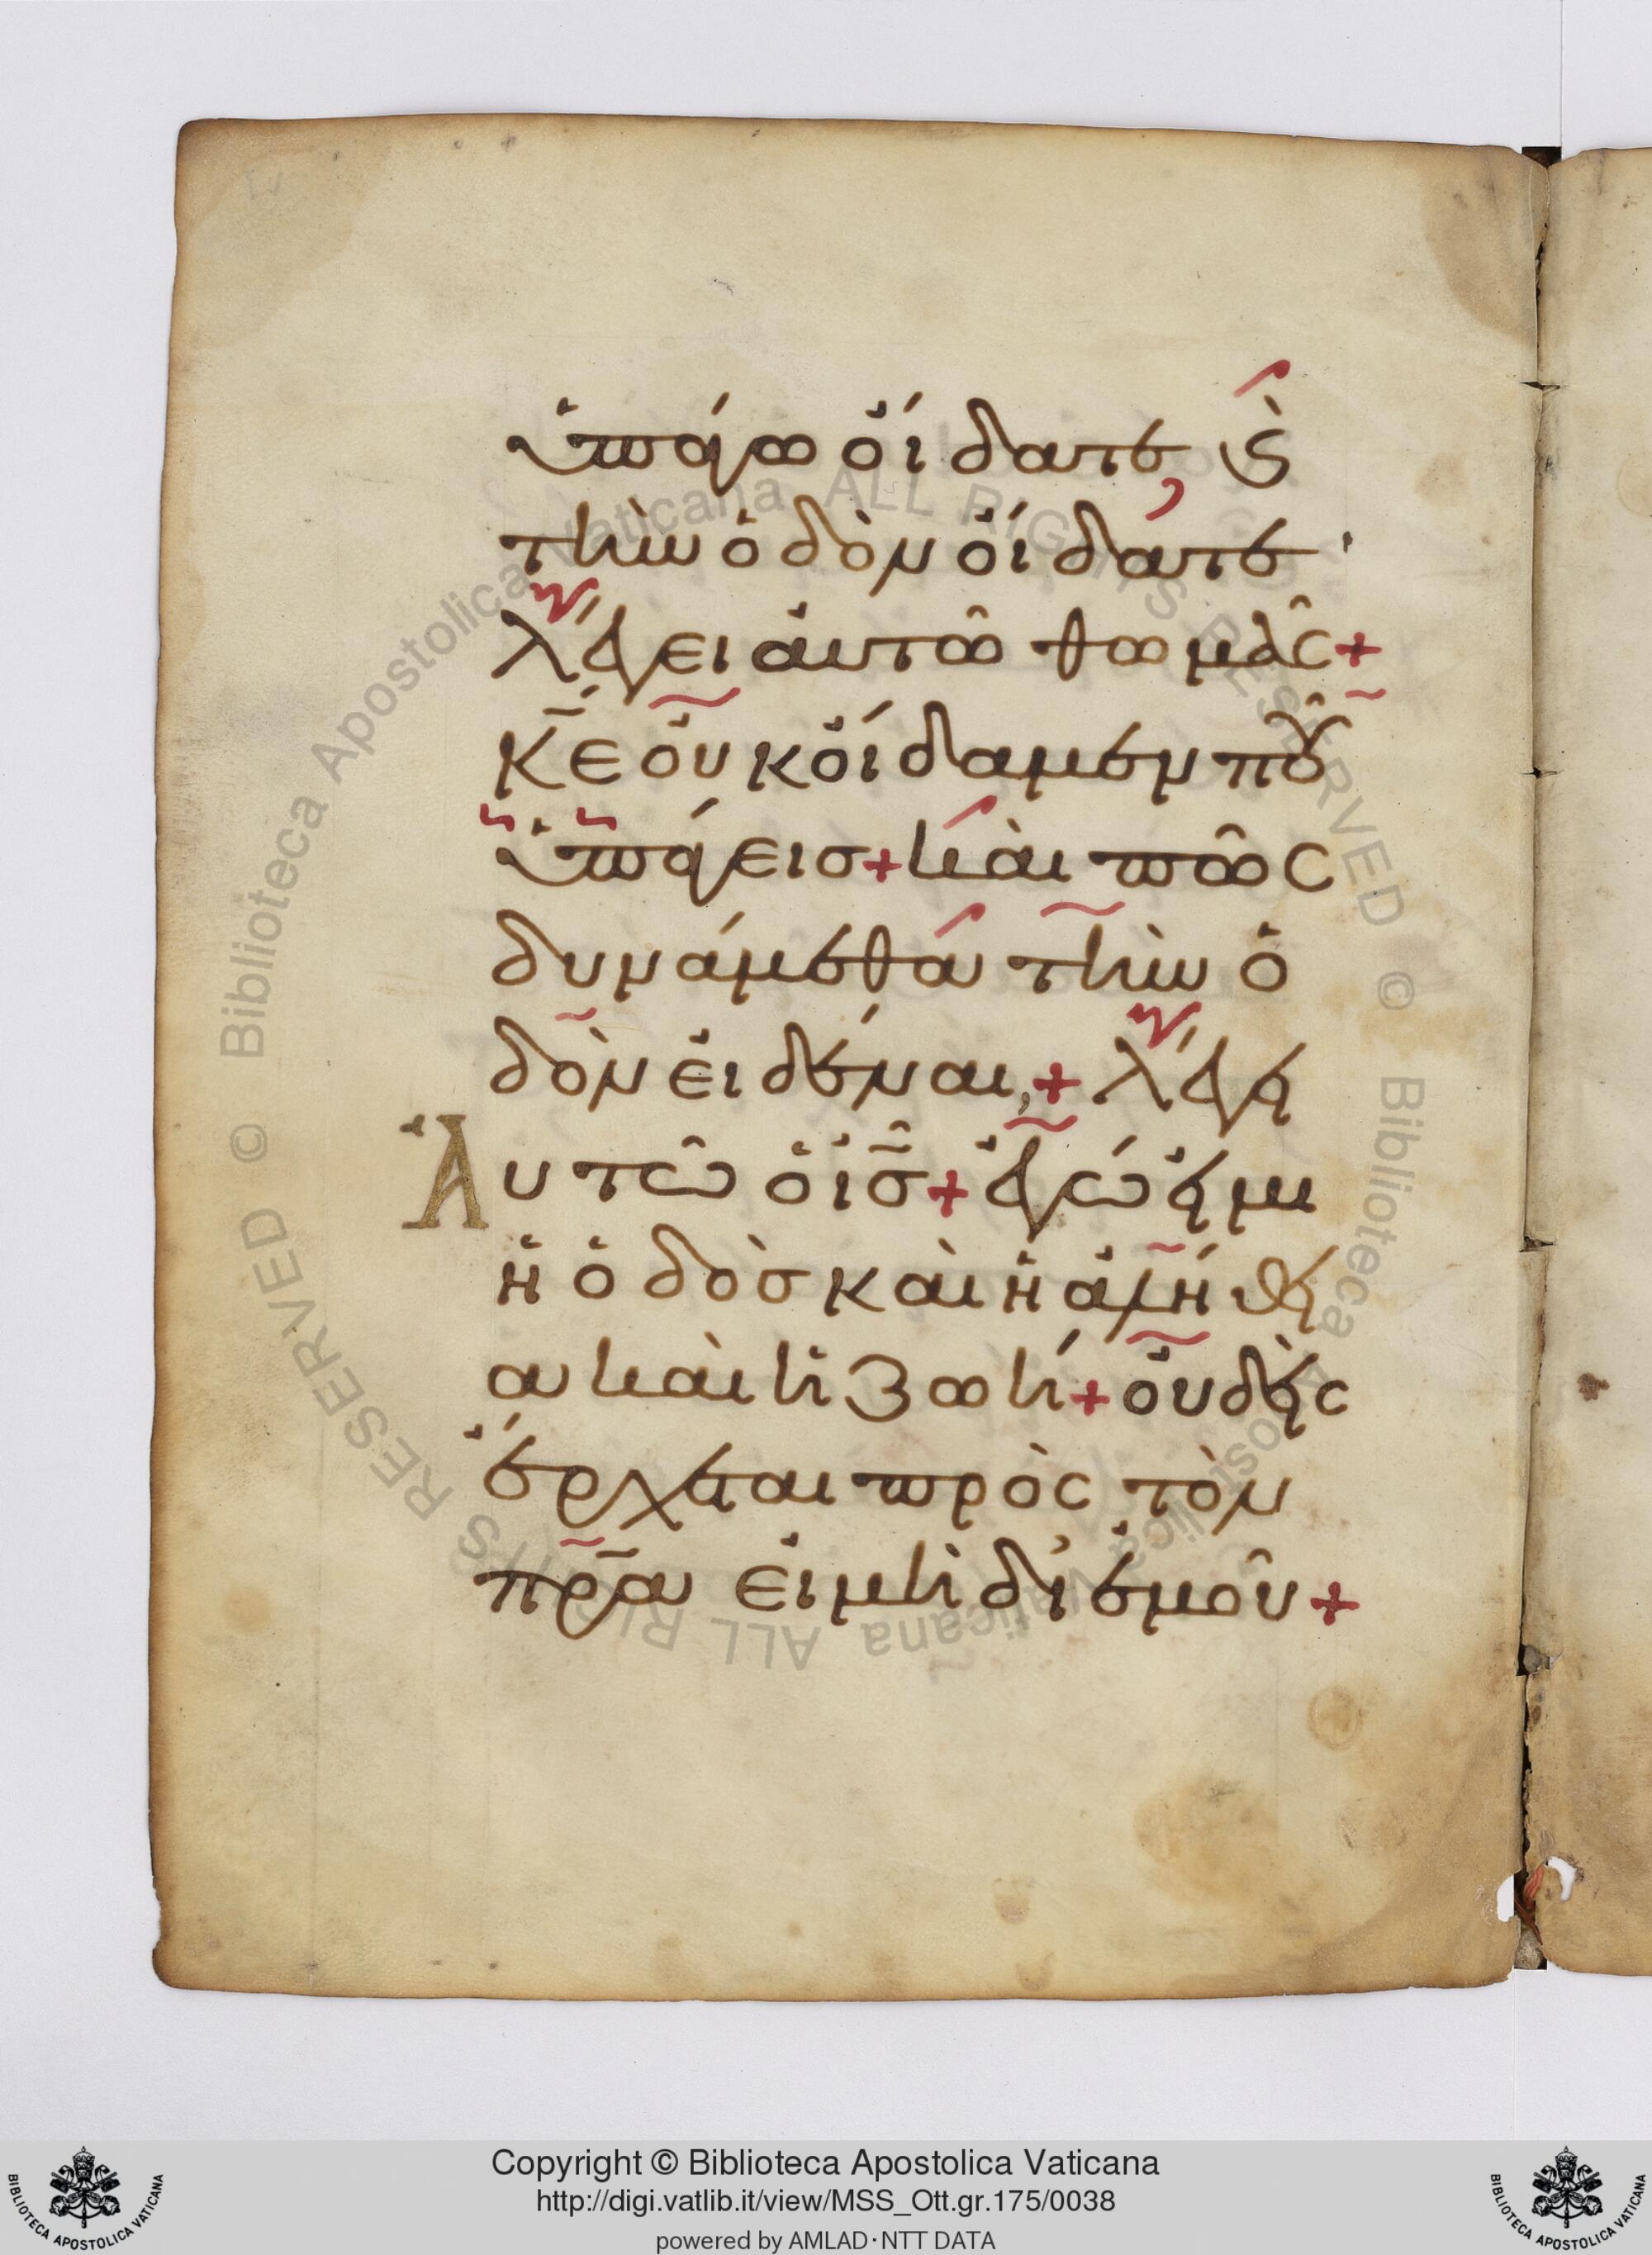 ὑπάγω οἴδατε, ϗ̀
τὴν ὁδὸν οἴδατε·
λέγει αὐτῶ θωμᾶς+
κ̅ε̅ οὐκ οἴδαμεν ποῦ
ὑπάγεισ+ καὶ πῶς
δυνάμεθα τὴν ὁ
δὸν εἰδέναι,+ λέγει
Ἀυτῶ ὁ ἰ̅σ̅+ ἐγώ εἰμι
ἡ ὁδὸσ καὶ ἡ ἀλήθει
α καὶ ἡ ζωή+ οὐδεὶς
ἔρχεται πρὸς τὸν
π̅ρ̅α̅ εἰ μὴ δι' ἐμοῦ+
Biblioteca Apostolica Vaticana ALL RIGHTS RESERVED ©
Biblioteca Apostolica Vaticana ALL RIGHTS RESERVED ©
Copyright © Biblioteca Apostolica Vaticana
http://digi.vatlib.it/view/MSS_Ott.gr.175/0038
powered by AMLAD·NTT DATA
BIBLIOTECA APOSTOLICA VATICANA
BIBLIOTECA APOSTOLICA VATICANA